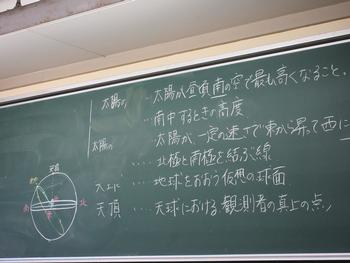 太陽の … 太陽が昼頃南の空で最も高くなること。
… 南中するときの高度
太陽の 太陽が、一定の速さで東から昇って西に
… 北極と南極を結ぶ線
… 地球をおおう仮想の球面
天頂 …… 天球における、観測者の真上の点
天頂